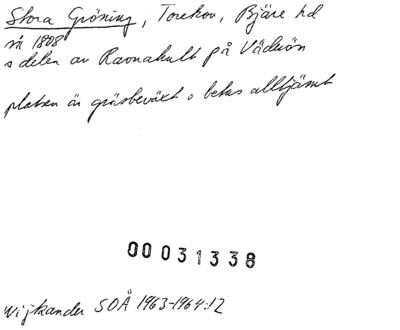 Stora Gröning, Torekov, Bjäre hd
så 1808
s delen av Ramnahult på Väderön
platsen är gräsbeväxt o betas alltjämt
00031338
Wijkander SOÅ 1963-1964:12